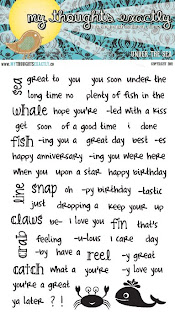 my thoughts exactly
UNDER THE SEA
WWW.MYTHOUGHTSEXACTLY.
COPYRIGHT
sea great to you you soon under the
long time no plenty of fish in the
whale hope you're -led with a kiss
get soon of a good time i done
fish -ing you a great day best -es
happy anniversary -ing you were here
when you upon a star happy birthday
line snap oh -py birthday -tastic
just dropping a keep your up
claws be- i love you fin that's
crab feeling -u-lous i care day
-by have a reel -y great
catch what a you're -y love you
you're a great
ya later ? ! !